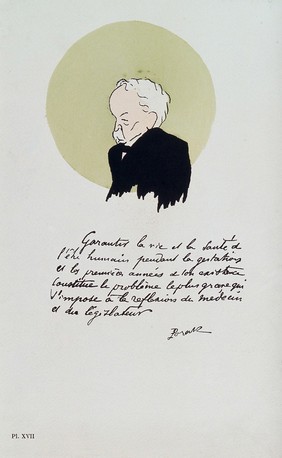 Garantir la vie et la santé d
l'être humain pendant la gestation
et les premières années d'son existence
Constitue le problème le plus grave qui
s'impose à la réflexion du médecin
et du législateur
Pl. XVII